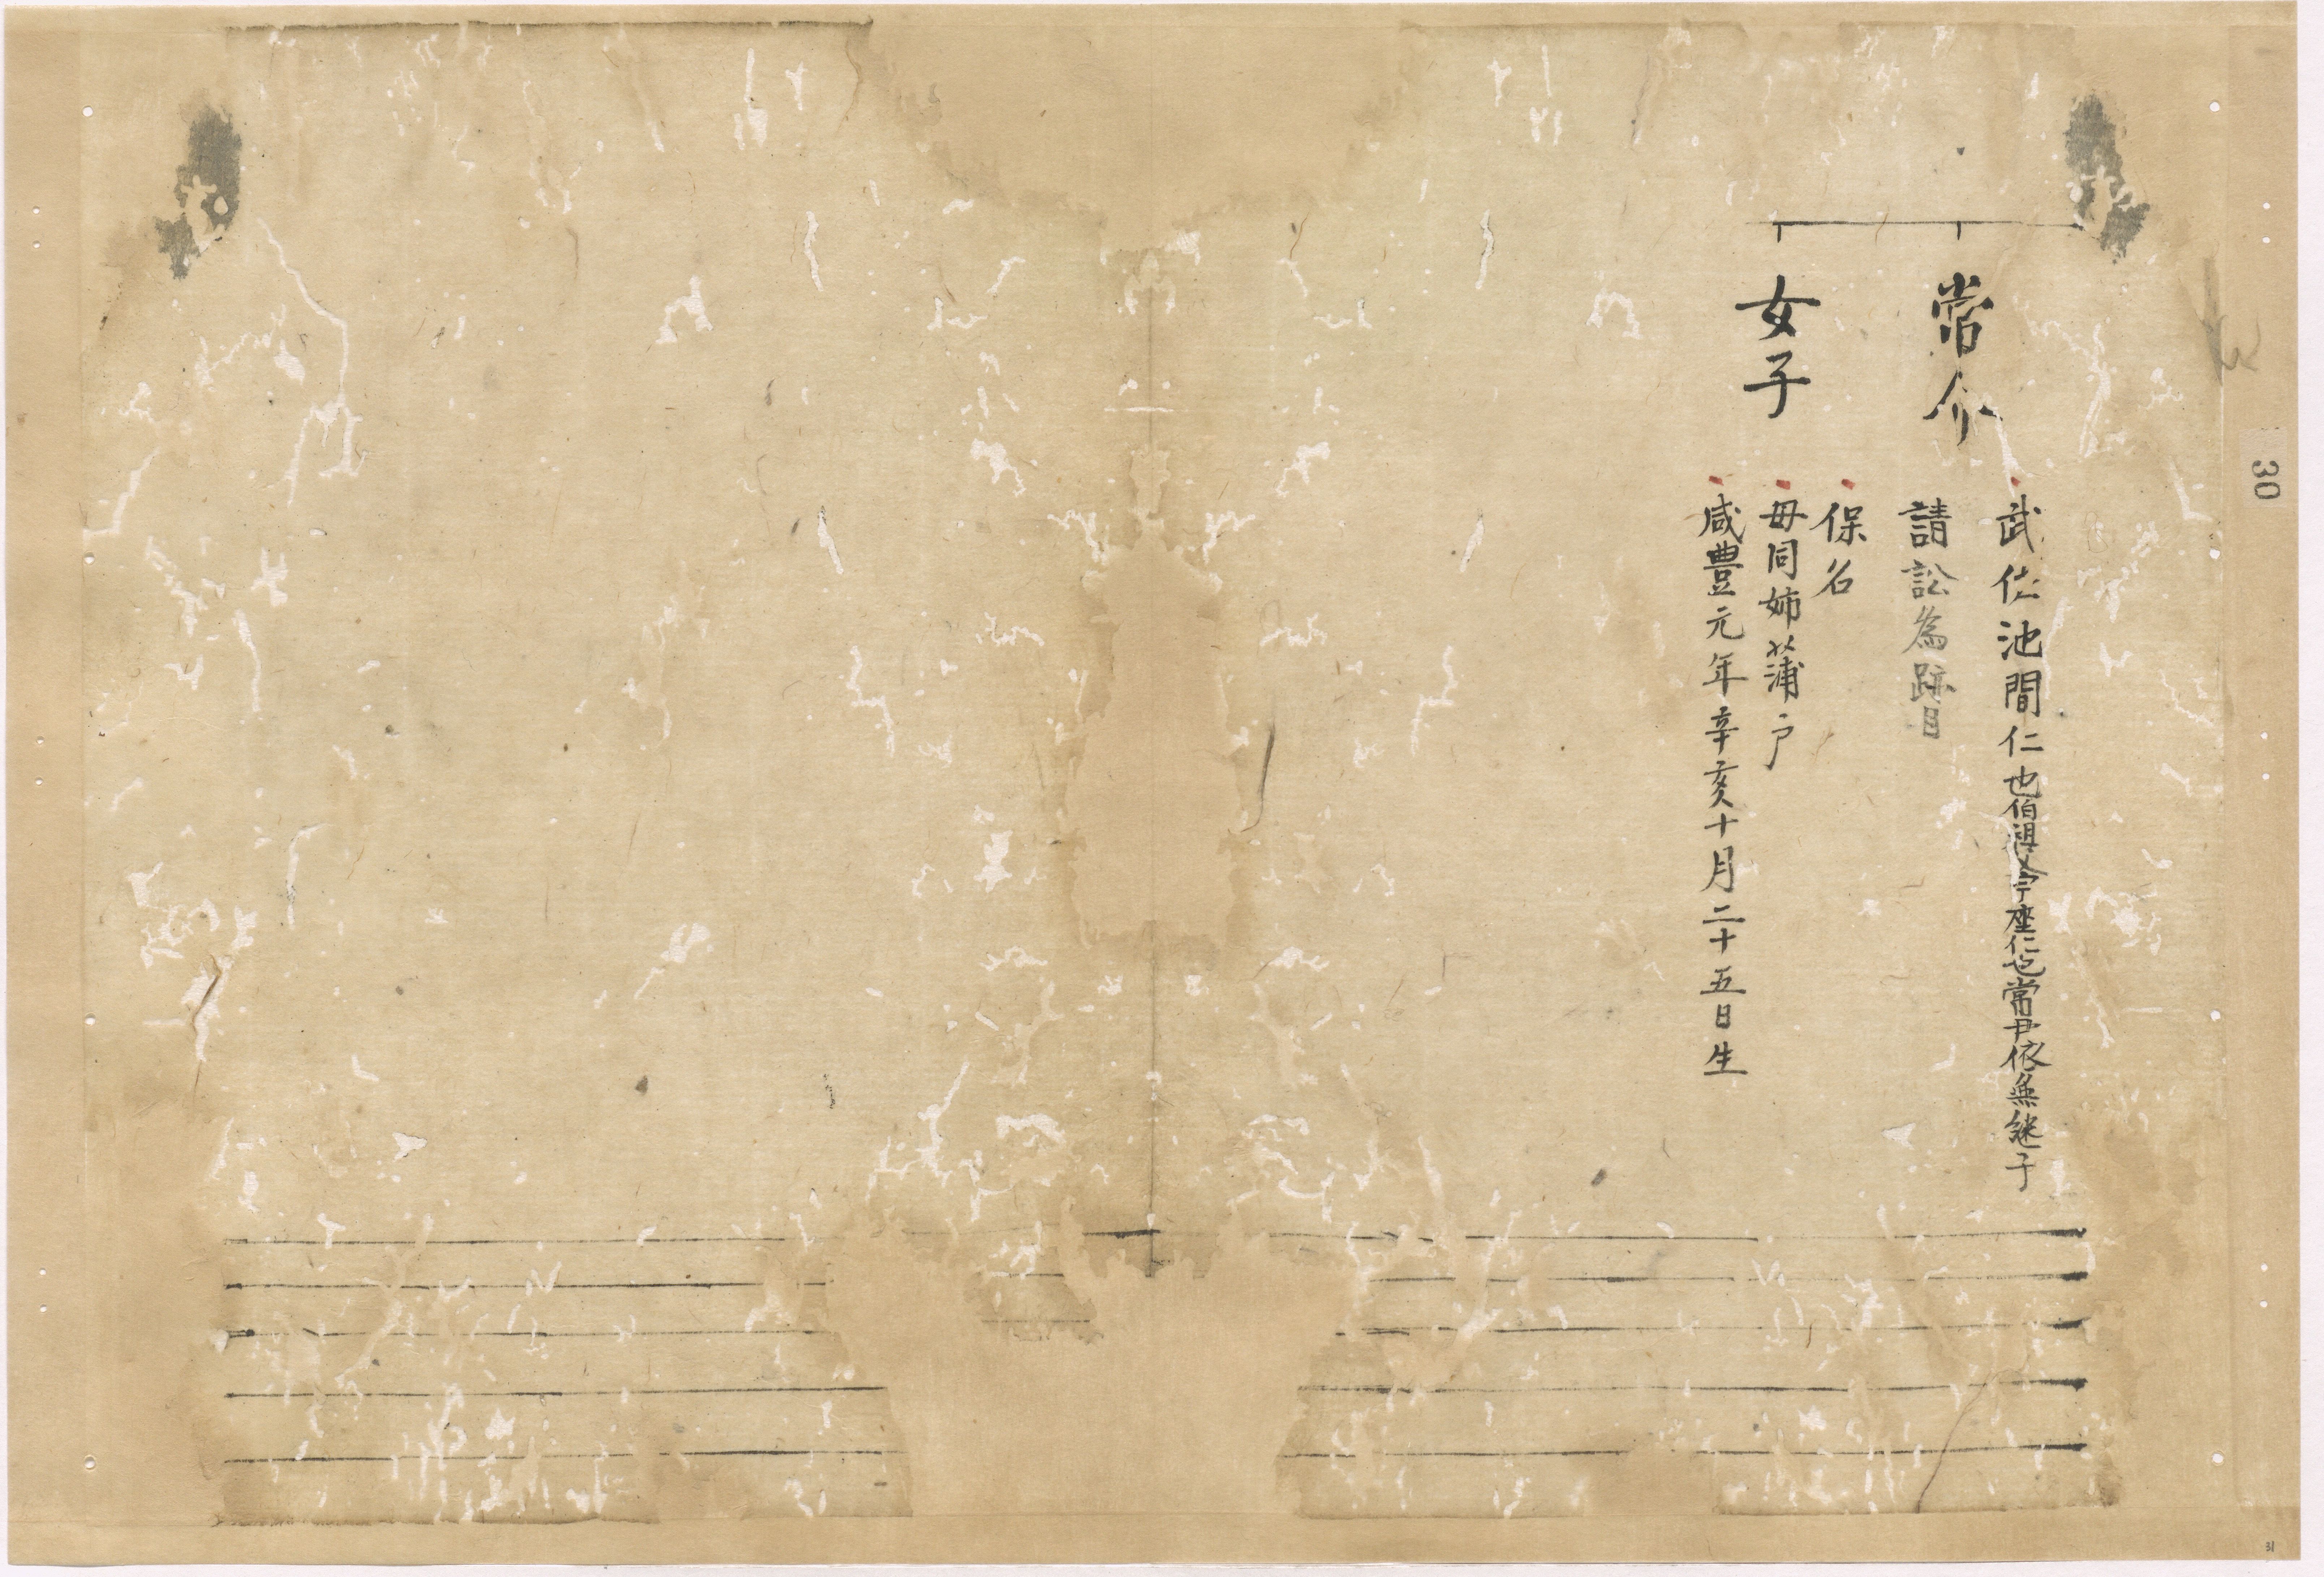 常介
武佐池間仁也伯祖父宇座仁也常尹依無継子
請訟為跡目
女子
保名
母同姉蒲戸
咸豊元年辛亥十月二十五日生
30
31